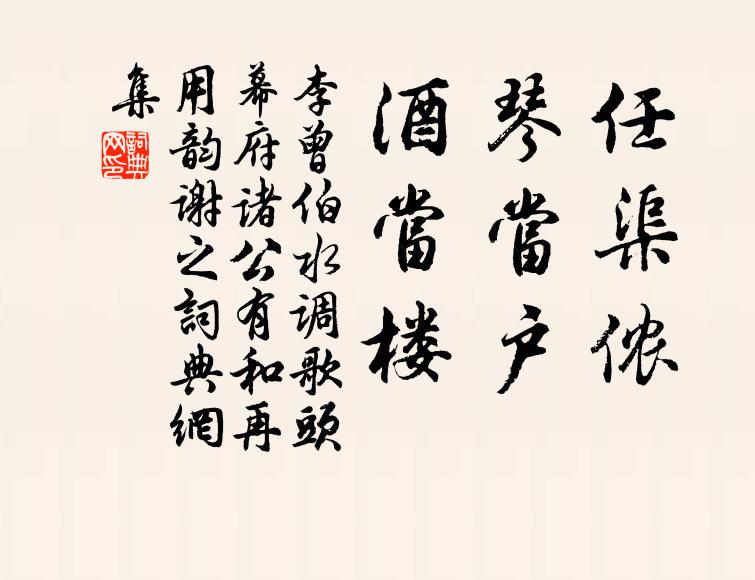 任渠侬
琴當户
酒當楼
李曾伯水调歌頭
幕府诸公有和再
用韵谢之詞典網
集
詞典
网印